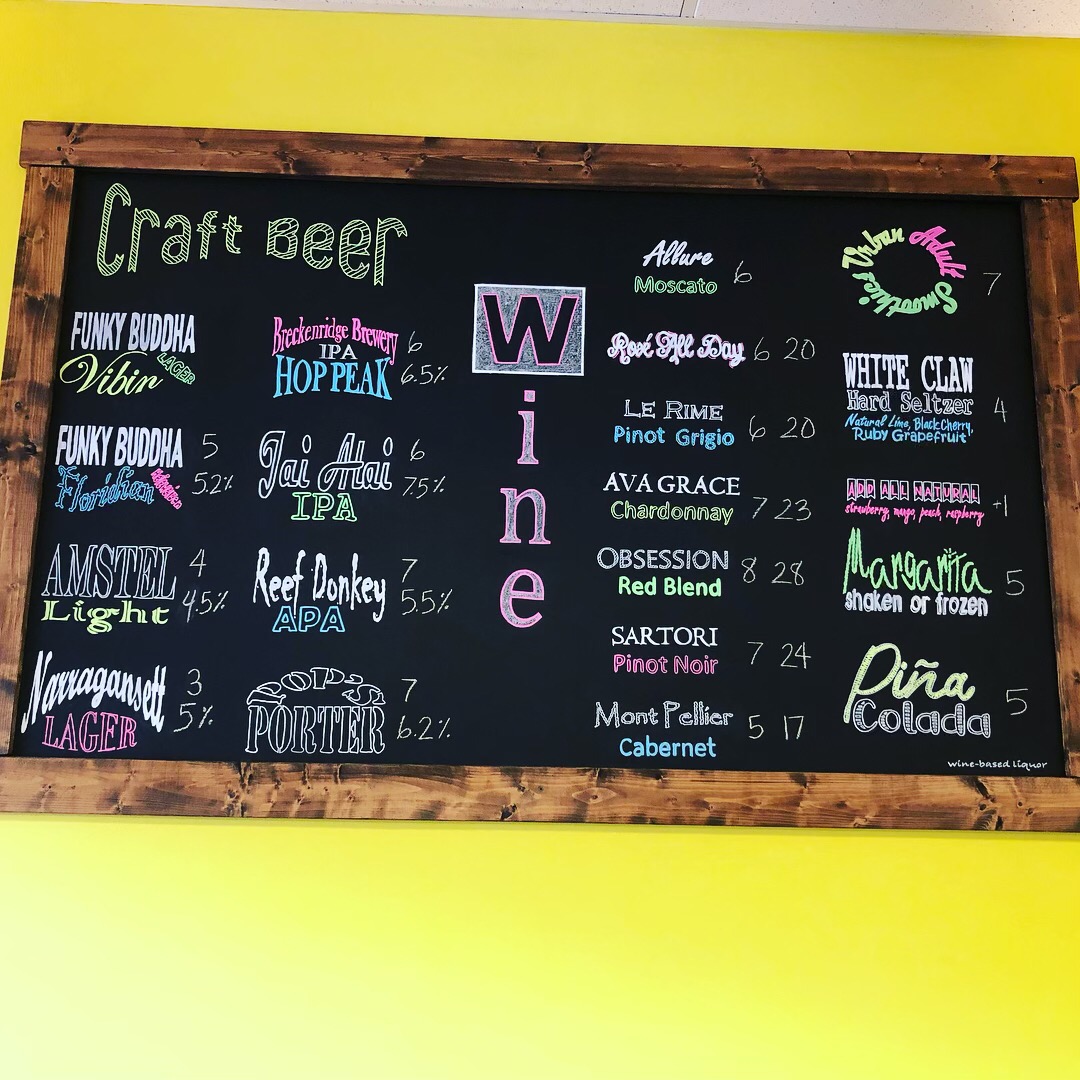 Craft Beer
FUNKY BUDDHA
Vibin LAGER
FUNKY BUDDHA 5
Floridian Hefeweizen 5.2%
AMSTEL 4
Light 4.5%
Narragansett 3
LAGER 5%
Breckenridge Brewery 6
IPA
HOP PEAK 6.5%
Jai Alai 6
IPA 7.5%
Reef Donkey 7
APA 5.5%
POP'S 7
PORTER 6.2%
Wine
Allure
Moscato 6
Rosé All Day 6 20
LE RIME
Pinot Grigio 6 20
AVA GRACE
Chardonnay 7 23
OBSESSION
Red Blend 8 28
SARTORI
Pinot Noir 7 24
Mont Pellier
Cabernet 5 17
Urban Adult Smoothies 7
WHITE CLAW
Hard Seltzer 4
Natural Lime, Black Cherry,
Ruby Grapefruit
ADD ALL NATURAL
strawberry, mango, peach, raspberry +1
Margarita 5
shaken or frozen
Piña
Colada 5
wine-based liquor